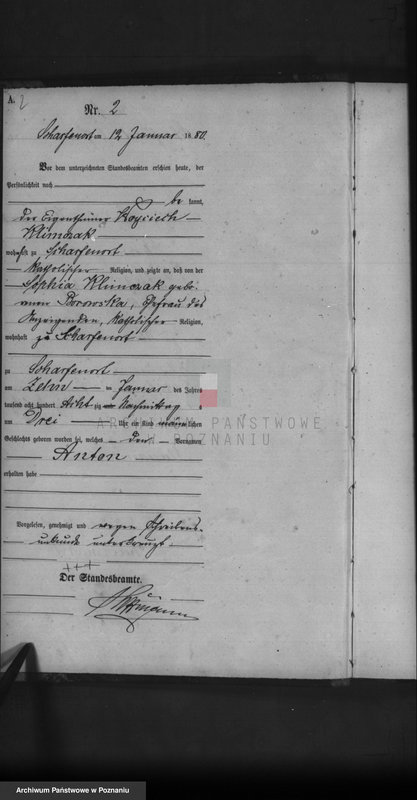 A. 2
Nr. 2
Scharfenort am 12 Januar 1880.
Vor dem unterzeichneten Standesbeamten erschien heute, der
Persönlichkeit nach
be kannt,
der Eigenthümer
Klimczak
wohnhaft zu Scharfenort
katholischer Religion, und zeigte an, daß von der
Sophia Klimczak gebo-
renen Borowska, Ehefrau des
Anzeigenden, katholischer Religion,
wohnhaft zu Scharfenort
zu Scharfenort
am Zehn ten Januar des Jahres
tausend acht hundert Acht zig Nachmittag s
um Drei Uhr ein Kind männ lichen
Geschlechts geboren worden sei, welches den Vornamen
Anton
erhalten habe
Vorgelesen, genehmigt und wegen Schreibens-
unkunde unterkreuzt
+++
Der Standesbeamte.
ARCHIWUM PAŃSTWOWE
W POZNANIU
Archiwum Państwowe w Poznaniu